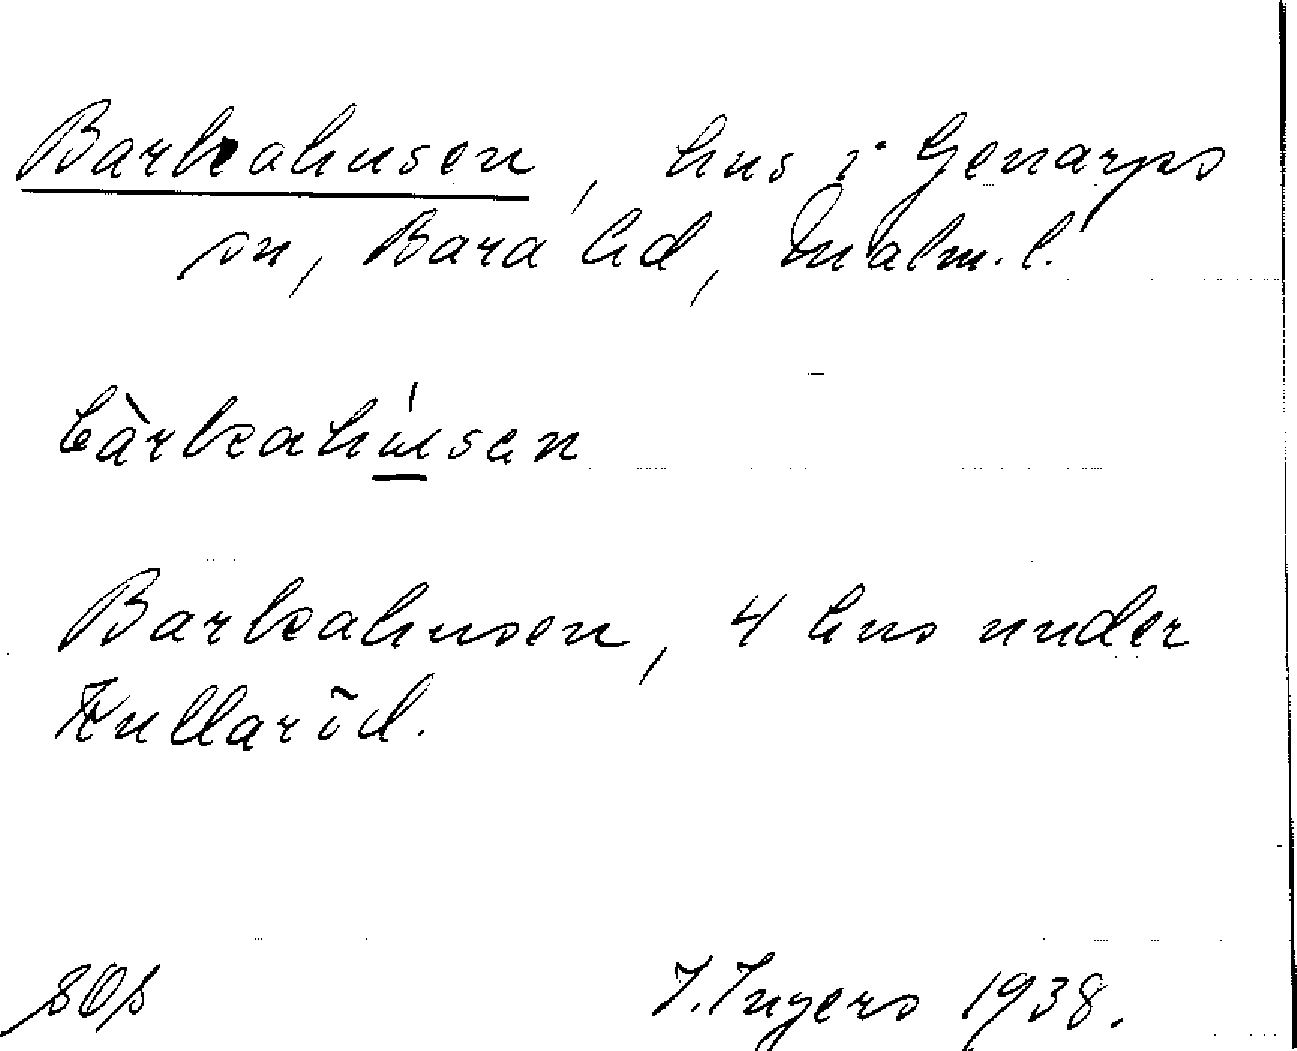 Barkahusen, hus i Genarps
sn, Bara hd, Malm. l.
bàrkahúsen
Barkahusen, 4 hus under
Kullaröd.
I. Ingers 1938.